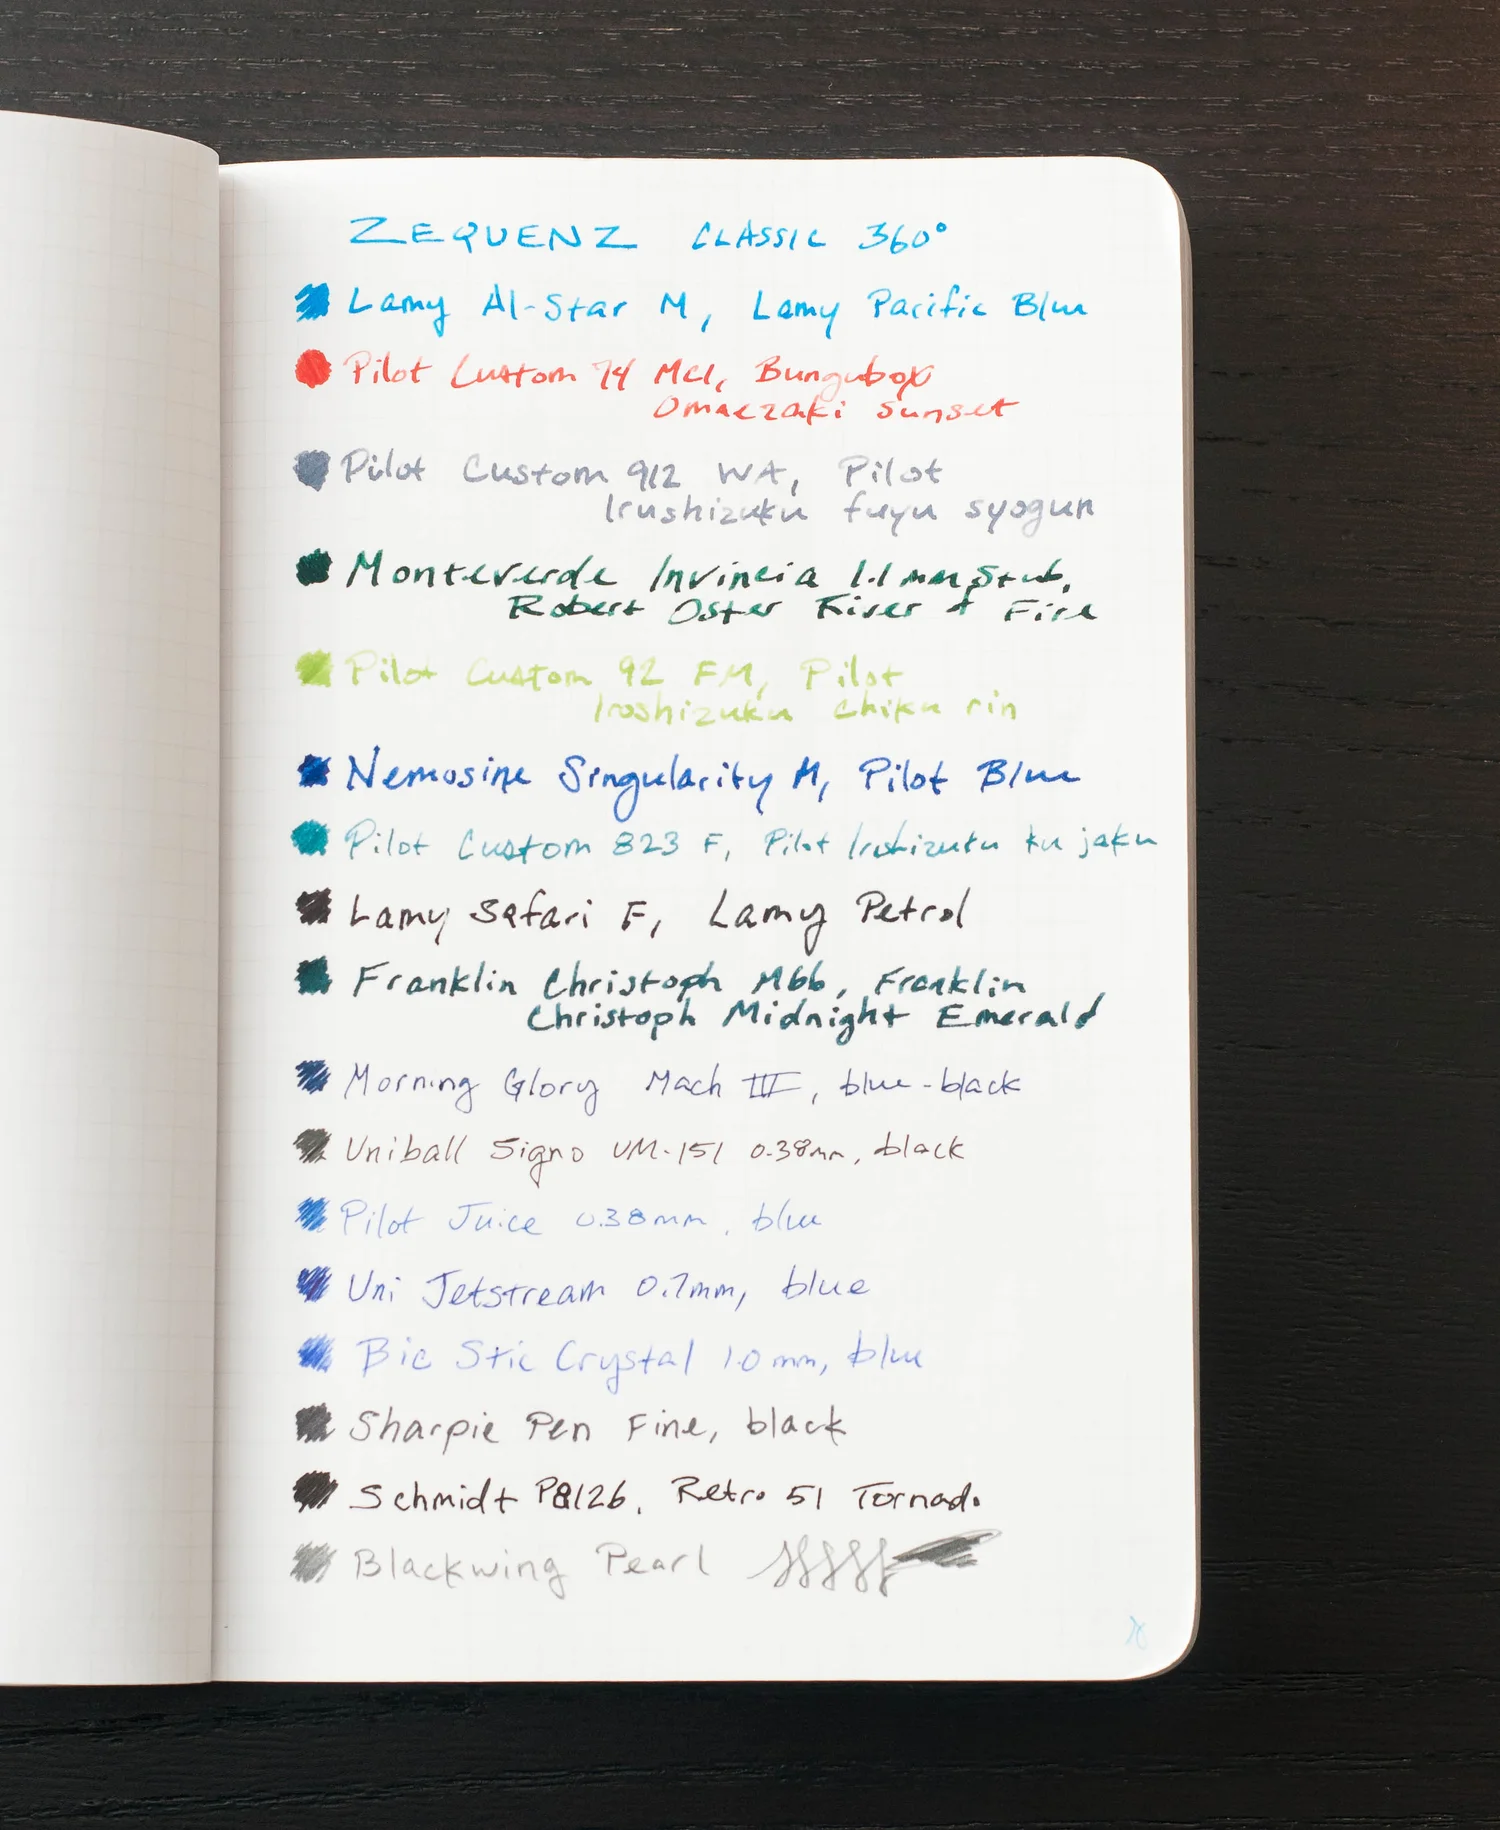 ZEQUENZ CLASSIC 360°
Lamy Al-Star M, Lamy Pacific Blue
Pilot Custom 74 MCI, Bungubox
Omaezaki sunset
Pilot Custom 912 WA, Pilot
Irushizuku fuyu syogun
Monteverde Invincia 1.1 mm Stub,
Robert Oster River + Fire
Pilot Custom 92 FM, Pilot
Iroshizuku chiku rin
Nemosine Singularity M, Pilot Blue
Pilot Custom 823 F, Pilot Irushizuku ku jaku
Lamy Safari F, Lamy Petrol
Franklin Christoph M66, Franklin
Christoph Midnight Emerald
Morning Glory Mach III, blue-black
Uniball Signo UM-151 0.38mm, black
Pilot Juice 0.38mm, blue
Uni Jetstream 0.7mm, blue
Bic Stic Crystal 1.0 mm, blue
Sharpie Pen Fine, black
Schmidt P8126, Retro 51 Tornado
Blackwing Pearl